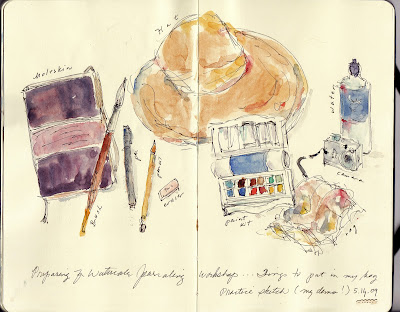 Hat
Moleskin
water
pen
pencil
eraser
Brush
paint
kit
Preparing for Watercolor Journaling Workshops... Things to put in my bag
Practice sketch (my demo!) 5.14.09